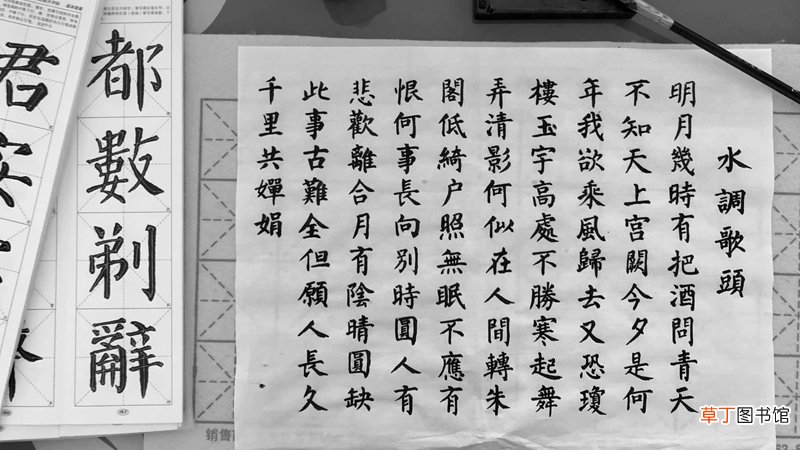 水調歌頭
明月幾時有把酒問青天
不知天上宮闕今夕是何
年我欲乘風歸去又恐瓊
樓玉宇高處不勝寒起舞
弄清影何似在人間轉朱
閣低綺户照無眠不應有
恨何事長向別時圓人有
悲歡離合月有陰晴圓缺
此事古難全但願人長久
千里共嬋娟
都數剃辭
君
销售
草丁图书馆